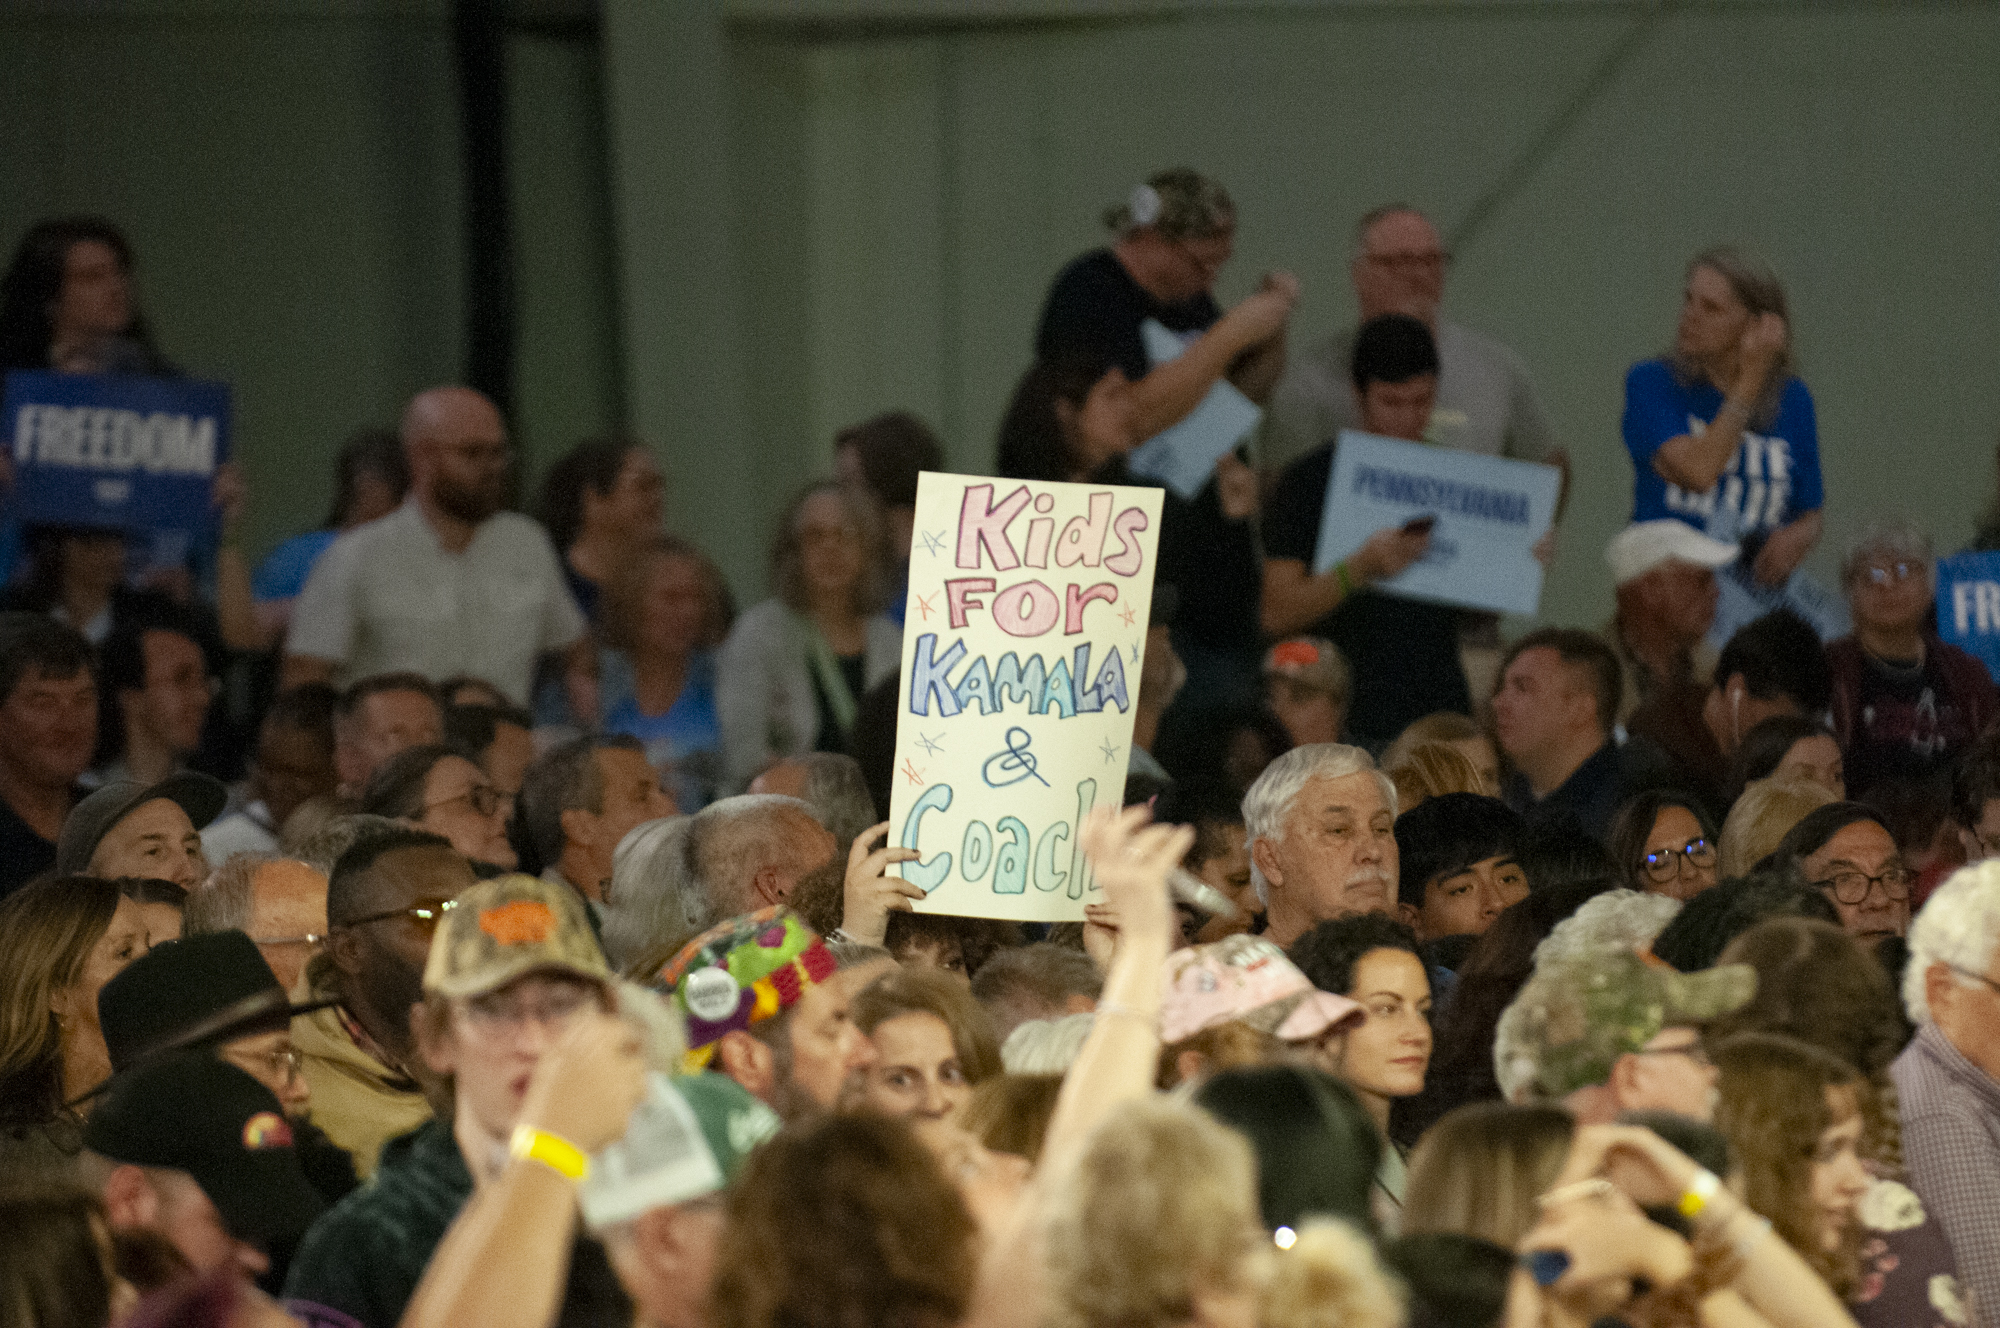 FREEDOM
Kids
FOr
KAMALA
&
Coach
PENNSYLVANIA
VOTE
FR